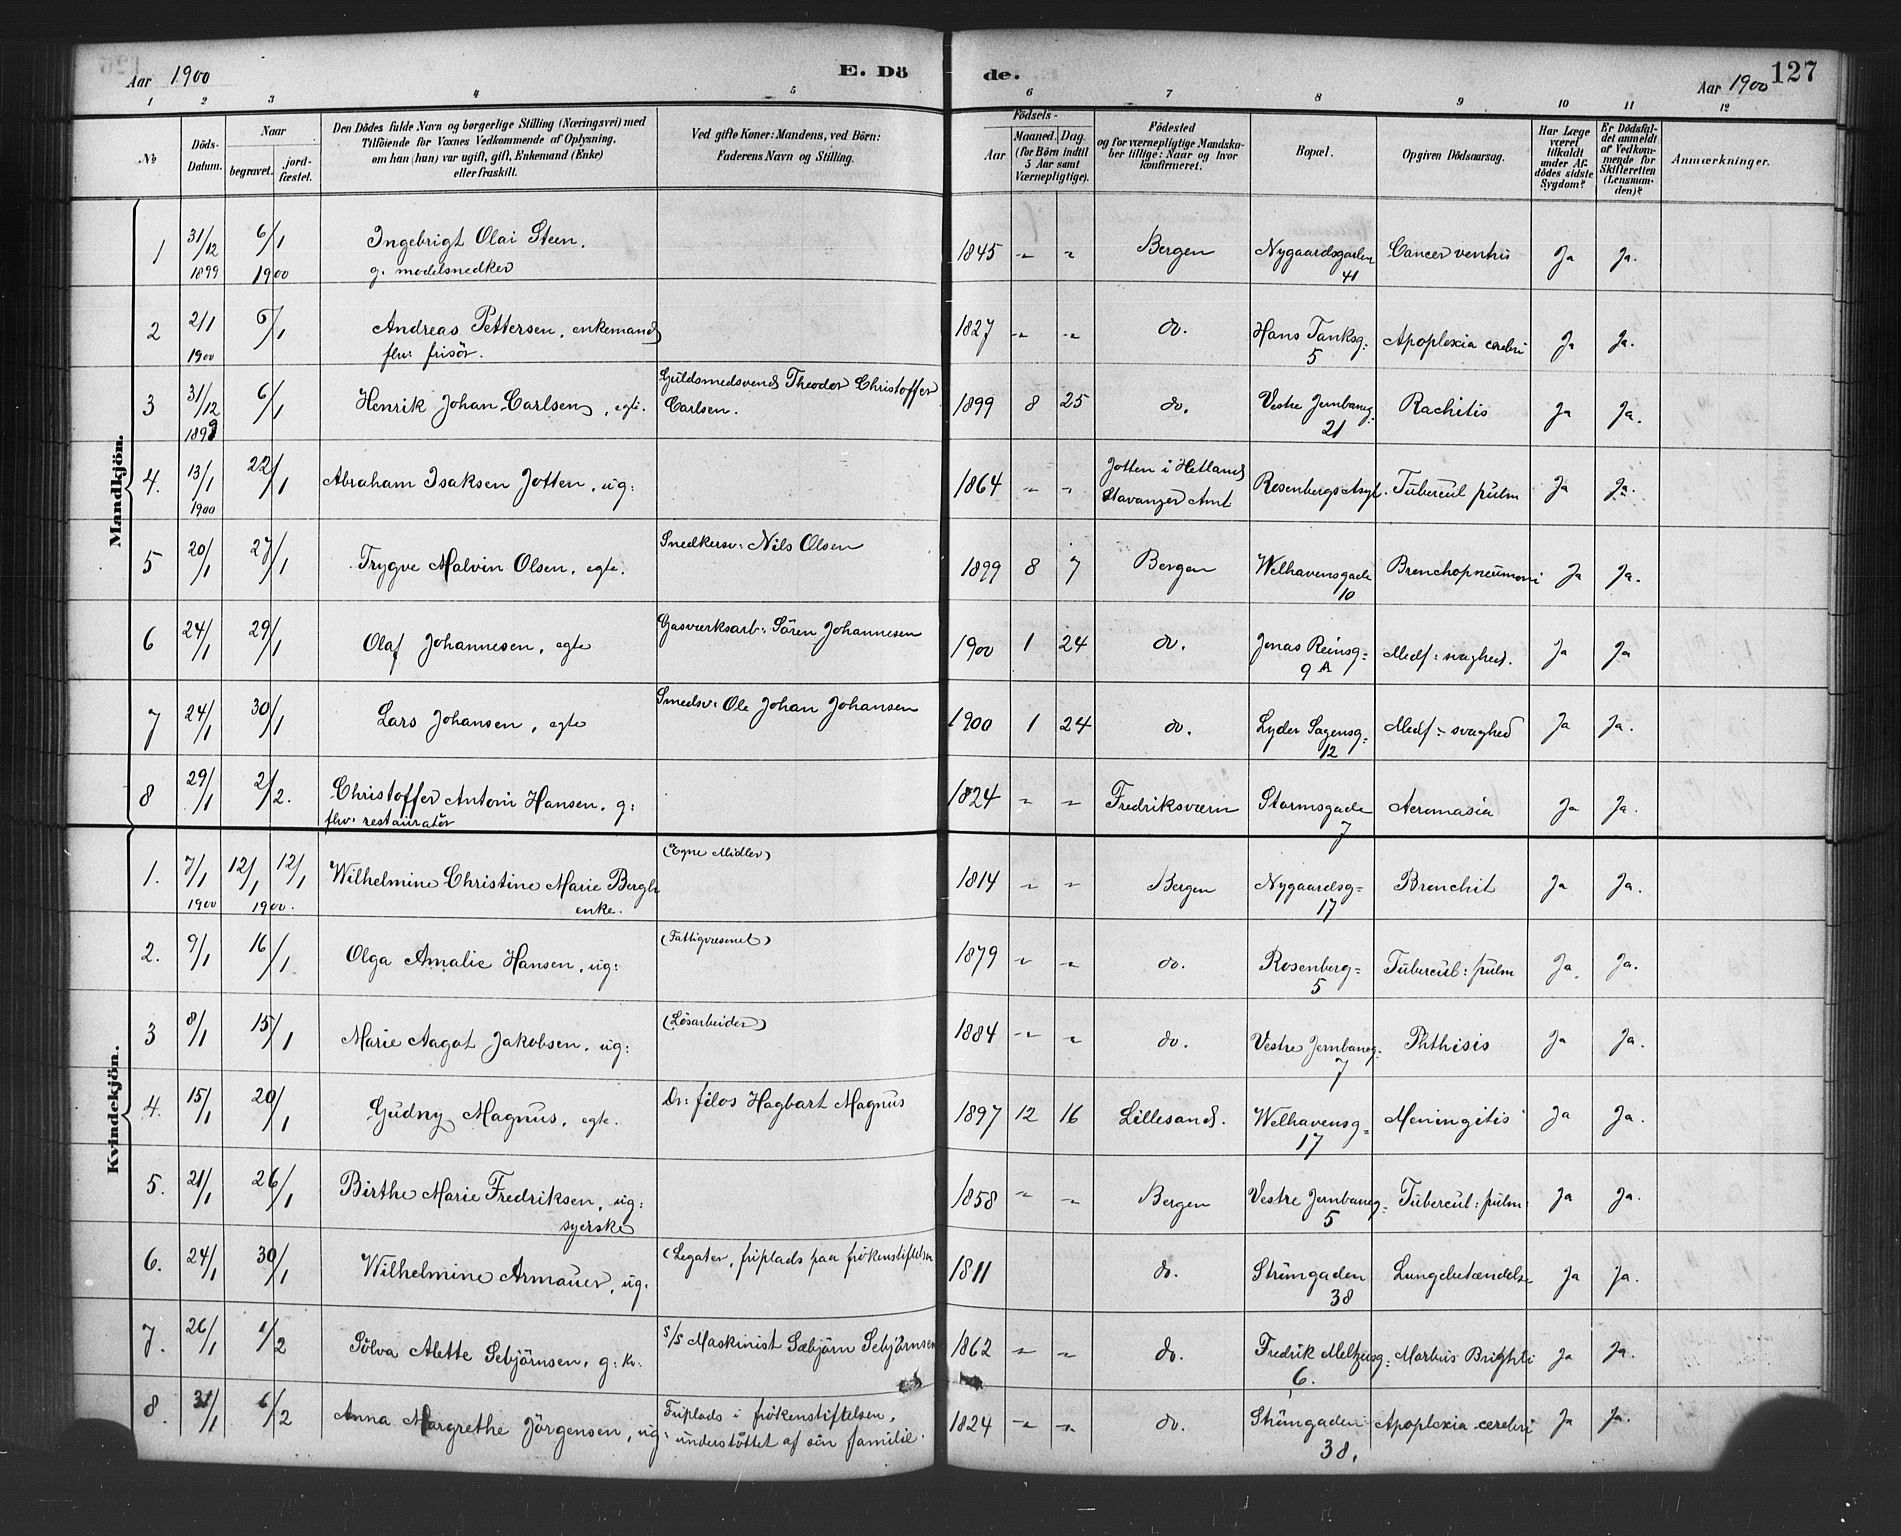 Aar 1900
E. Dö
de.
Aar 1900
127
1 2 3 4 5 6 7 8 9 10 11 12
№
Döds-Datum.
Naar
begravet.
jord-fæstet.
Den Dödes fulde Navn og borgerlige Stilling (Næringsvei) med
Tilföiende for Voxnes Vedkommende af Oplysning,
om han (hun) var ugift, gift, Enkemand (Enke)
eller fraskilt.
Ved gifte Koner: Mandens, ved Börn:
Faderens Navn og Stilling.
Födsels-
Aar
Maaned.
Dag.
(for Börn indtil
5 Aar samt
Værnepligtige).
Födested
og for værnepligtige Mandska-
ber tillige: Naar og hvor
konfirmeret.
Bopæl.
Opgiven Dödsaarsag.
Har Læge
været
tilkaldt
under Af-
dödes sidste
Sygdom?
Er Dödsfal-
det anmeldt
af Vedkom-
mende for
Skifteretten
(Lensman-
den)?
Anmærkninger.
Mandkjön.
1 31/12 1899 6/1 1900 Ingebrigt Olai Steen, 1845 " " Bergen Nygaardsgaden 41 Cancer ventris Ja Ja.
g. modelsnedker
2 2/1 1900 6/1 Andreas Pettersen, enkemand 1827 " " do. Hans Tanksg: 5 Apoplexia cerebri Ja Ja.
flv: frisör.
3 31/12 1899 6/1 Henrik Johan Carlsen, egte. Guldsmedsvend Theodor Christoffer Carlsen. 1899 8 25 do. Vestre Jernbaneg. 21 Rachitis Ja Ja.
4. 13/1 1900 22/1 Abraham Isaksen Jotten, ug: 1864 " " Jotten i Hetland Stavanger Amt Rosenbergs Asyl. Tubercul pulm Ja Ja.
5 20/1 27/1 Trygve Malvin Olsen, egte. Snedkersv: Nils Olsen 1899 8 7 Bergen Welhavensgade 10 Bronchopneumoni Ja Ja.
6 24/1 29/1 Olaf Johannesen, egte Gasværksarb: Sören Johannesen 1900 1 24 do. Jonas Reinsg: 9 A Medf: svaghed. Ja Ja
7 24/1 30/1 Lars Johansen, egte Smedsv: Ole Johan Johansen 1900 1 24 do. Lyder Sagensg: 12 Medf: svaghed Ja Ja.
8 29/1 2/2. Christoffer Antoni Hansen, g: 1824 " " Fredriksværn Stormsgade 7 Ja Ja.
flv: restauratör
Kvindekjön.
1. 7/1 1900 12/1 1900. 12/1 Wilhelmine Christine Marie Bergh enke. (Egne Midler) 1814 " " Bergen Nygaardsg= 17 Bronchit Ja Ja.
2. 9/1 16/1 Olga Amalie Hansen, ug: (Fattigvæsenet) 1879 " " do. Rosenberg= 5 Tubercul: pulm Ja. Ja.
3 8/1 15/1 Marie Aagot Jakobsen, ug: (Lösarbeider) 1884 " " do. Vestre Jernbaneg: 7 Phthisis Ja Ja.
4. 15/1 20/1 Gudny Magnus, egte. Dr: filos Hagbart Magnus 1897 12 16 Lillesand. Welhavensg= 17 Meningitis Ja Ja.
5. 21/1 26/1 Birthe Marie Fredriksen, ug: 1858 " " Bergen Vestre Jernbaneg= 5 Tubercul: pulm: Ja Ja.
syerske
6. 24/1 30/1 Wilhelmine Armauer, ug. (Legater, friplads paa frökenstiftelsen 1811 do. Strömgaden 38 Lungebetændelse Ja Ja.
7. 26/1 1/2 Sölva Alette Sebjörnsen, g: kv: S/S Maskinist Sæbjörn Sebjörnsen 1862 " " do. Fredrik Meltzersg: 6. Morbus Brighti Ja Ja.
8. 31/1 6/2 Anna Margrethe Jörgensen, ug: Friplads i frökenstiftelsen, understöttet af sön familie. 1824 " " do. Strömgaden 38. Apoplexia cerebri Ja Ja.